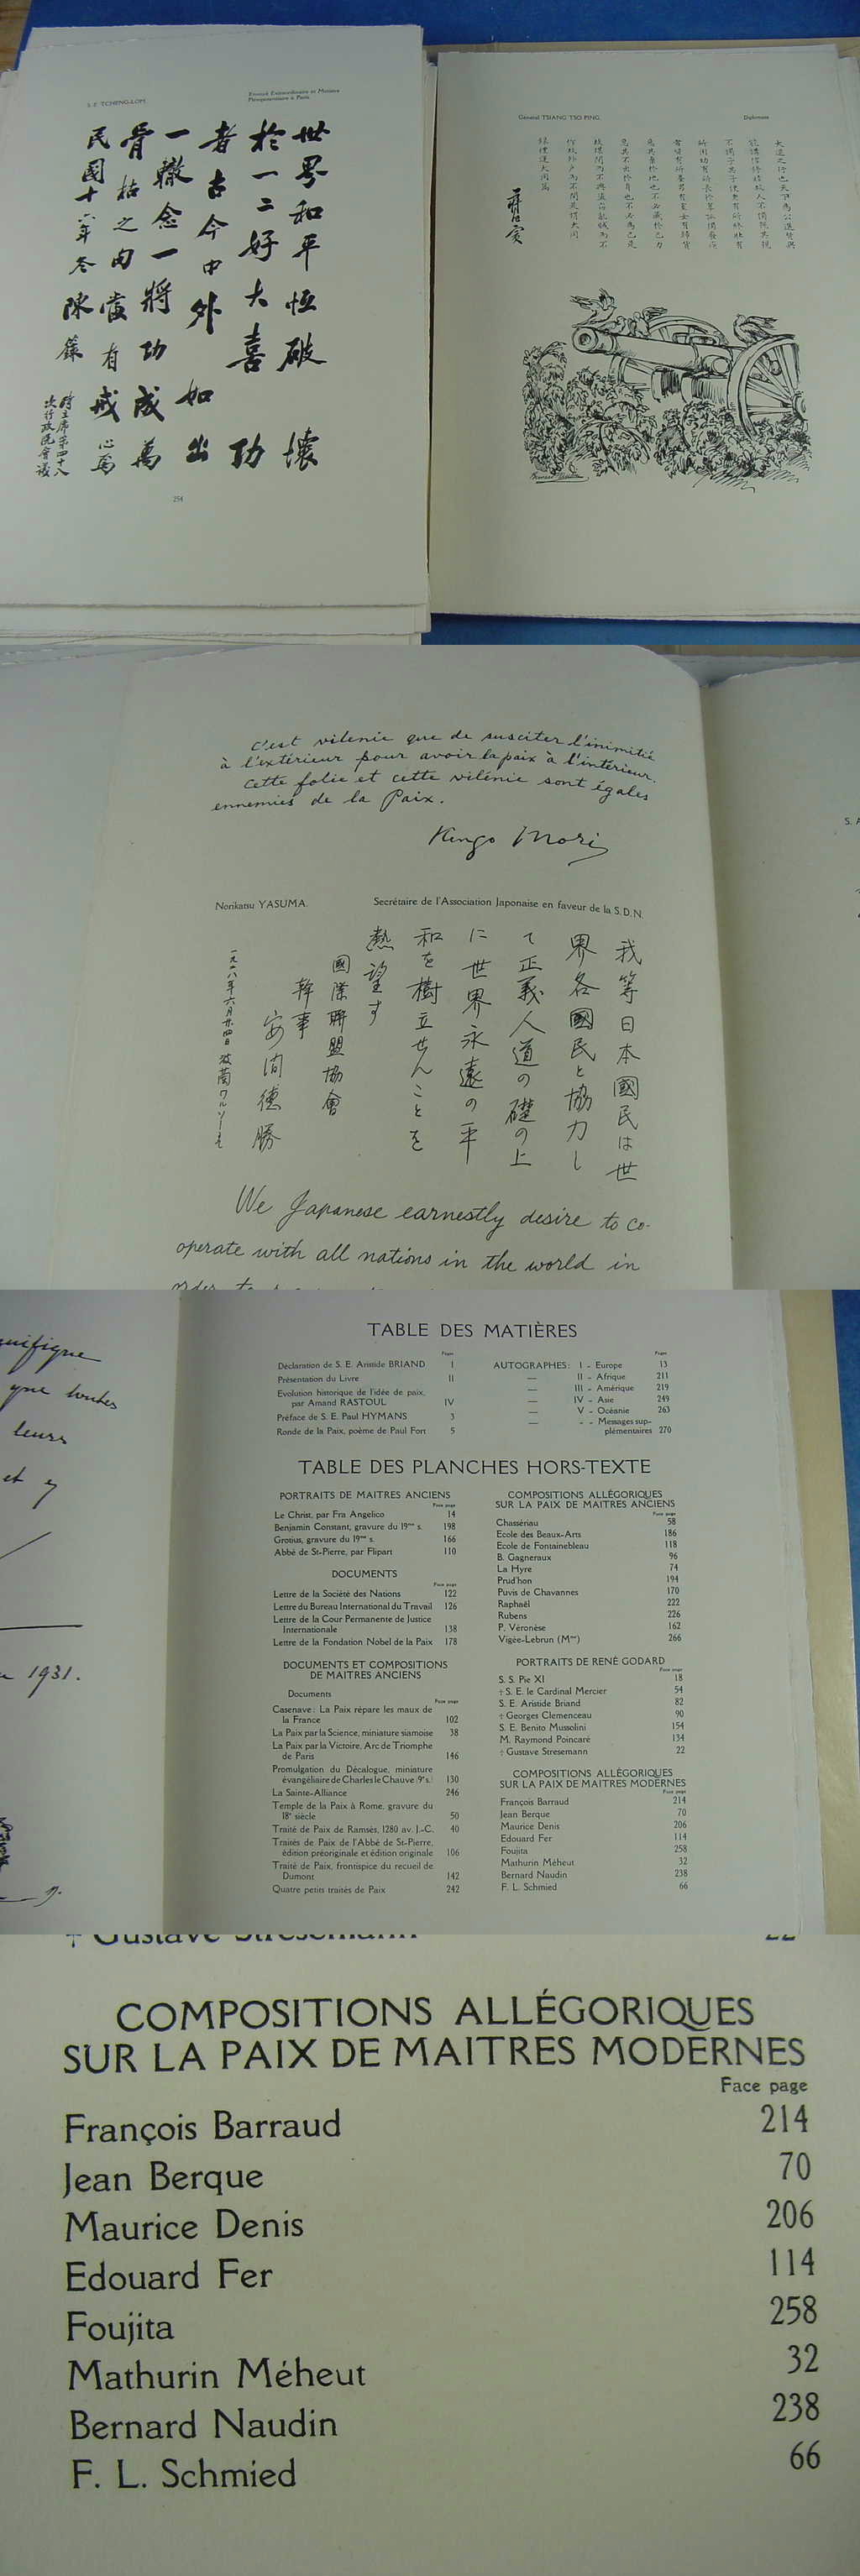 S. E. TCHENG-LOH.
Envoyé Extraordinaire et Ministre
Plénipotentiaire à Paris.
世界和平恒破壞
於一二好大喜功
者古今中外如出
一轍念一將功成萬
骨枯之句當有戒心焉
民國十八年冬陳籙
時主席第四十八
次行政院會議
254
Général TSIANG TSO PING.
Diplomate
大道之行也天下為公選賢與
能講信修睦故人不獨親其親
不獨子其子使老有所終壯有
所用幼有所長矜寡孤獨廢疾
者皆有所養男有分女有歸貨
惡其棄於地也不必藏於己力
惡其不出於身也不必為己是
故謀閉而不興盜竊亂賊而不
作故外戶而不閉是謂大同
錄禮運大同篇
c'est vilenie que de susciter l'inimitié
à l'extérieur pour avoir la paix à l'intérieur.
Cette folie et cette vilenie sont égales
ennemies de la Paix.
Kengo Mori
Norikatsu YASUMA.
Secrétaire de l'Association Japonaise en faveur de la S.D.N.
我等日本國民は世
界各國民と協力し
て正義人道の礎の上
に世界永遠の平
和を樹立せんことを
熱望す
國際聯盟協會
幹事
安間德勝
一九二八年六月廿四日 波蘭ワルソーにて
We Japanese earnestly desire to co-
operate with all nations in the world in
S. A
magnifique
que toutes
leurs
et
1931.
TABLE DES MATIÈRES
Pages
Déclaration de S. E. Aristide BRIAND I
Présentation du Livre II
Evolution historique de l'idée de paix,
par Amand RASTOUL IV
Préface de S. E. Paul HYMANS 3
Ronde de la Paix, poème de Paul Fort 5
Pages
AUTOGRAPHES: I - Europe 13
— II - Afrique 211
— III - Amérique 219
— IV - Asie 249
— V - Océanie 263
— - - Messages sup-
plémentaires 270
TABLE DES PLANCHES HORS-TEXTE
PORTRAITS DE MAITRES ANCIENS
Face page
Le Christ, par Fra Angelico 14
Benjamin Constant, gravure du 19me s. 198
Grotius, gravure du 19me s. 166
Abbé de St-Pierre, par Flipart 110
DOCUMENTS
Face page
Lettre de la Société des Nations 122
Lettre du Bureau International du Travail 126
Lettre de la Cour Permanente de Justice
Internationale 138
Lettre de la Fondation Nobel de la Paix 178
DOCUMENTS ET COMPOSITIONS
DE MAITRES ANCIENS
Documents
Face page
Casenave: La Paix répare les maux de
la France 102
La Paix par la Science, miniature siamoise 38
La Paix par la Victoire, Arc de Triomphe
de Paris 146
Promulgation du Décalogue, miniature
évangéliaire de Charles le Chauve (9e s.) 130
La Sainte-Alliance 246
Temple de la Paix à Rome, gravure du
18e siècle 50
Traité de Paix de Ramsès, 1280 av. J.-C. 40
Traités de Paix de l'Abbé de St-Pierre,
édition préoriginale et édition originale 106
Traité de Paix, frontispice du recueil de
Dumont 142
Quatre petits traités de Paix 242
COMPOSITIONS ALLÉGORIQUES
SUR LA PAIX DE MAITRES ANCIENS
Face page
Chassériau 58
Ecole des Beaux-Arts 186
Ecole de Fontainebleau 118
B. Gagneraux 96
La Hyre 74
Prud'hon 194
Puvis de Chavannes 170
Raphaël 222
Rubens 226
P. Véronèse 162
Vigée-Lebrun (Mme) 266
PORTRAITS DE RENÉ GODARD
Face page
S. S. Pie XI 18
† S. E. le Cardinal Mercier 54
S. E. Aristide Briand 82
† Georges Clemenceau 90
S. E. Benito Mussolini 154
M. Raymond Poincaré 134
† Gustave Stresemann 22
COMPOSITIONS ALLÉGORIQUES
SUR LA PAIX DE MAITRES MODERNES
Face page
François Barraud 214
Jean Berque 70
Maurice Denis 206
Edouard Fer 114
Foujita 258
Mathurin Méheut 32
Bernard Naudin 238
F. L. Schmied 66
† Gustave Stresemann 22
COMPOSITIONS ALLÉGORIQUES
SUR LA PAIX DE MAITRES MODERNES
Face page
François Barraud 214
Jean Berque 70
Maurice Denis 206
Edouard Fer 114
Foujita 258
Mathurin Méheut 32
Bernard Naudin 238
F. L. Schmied 66